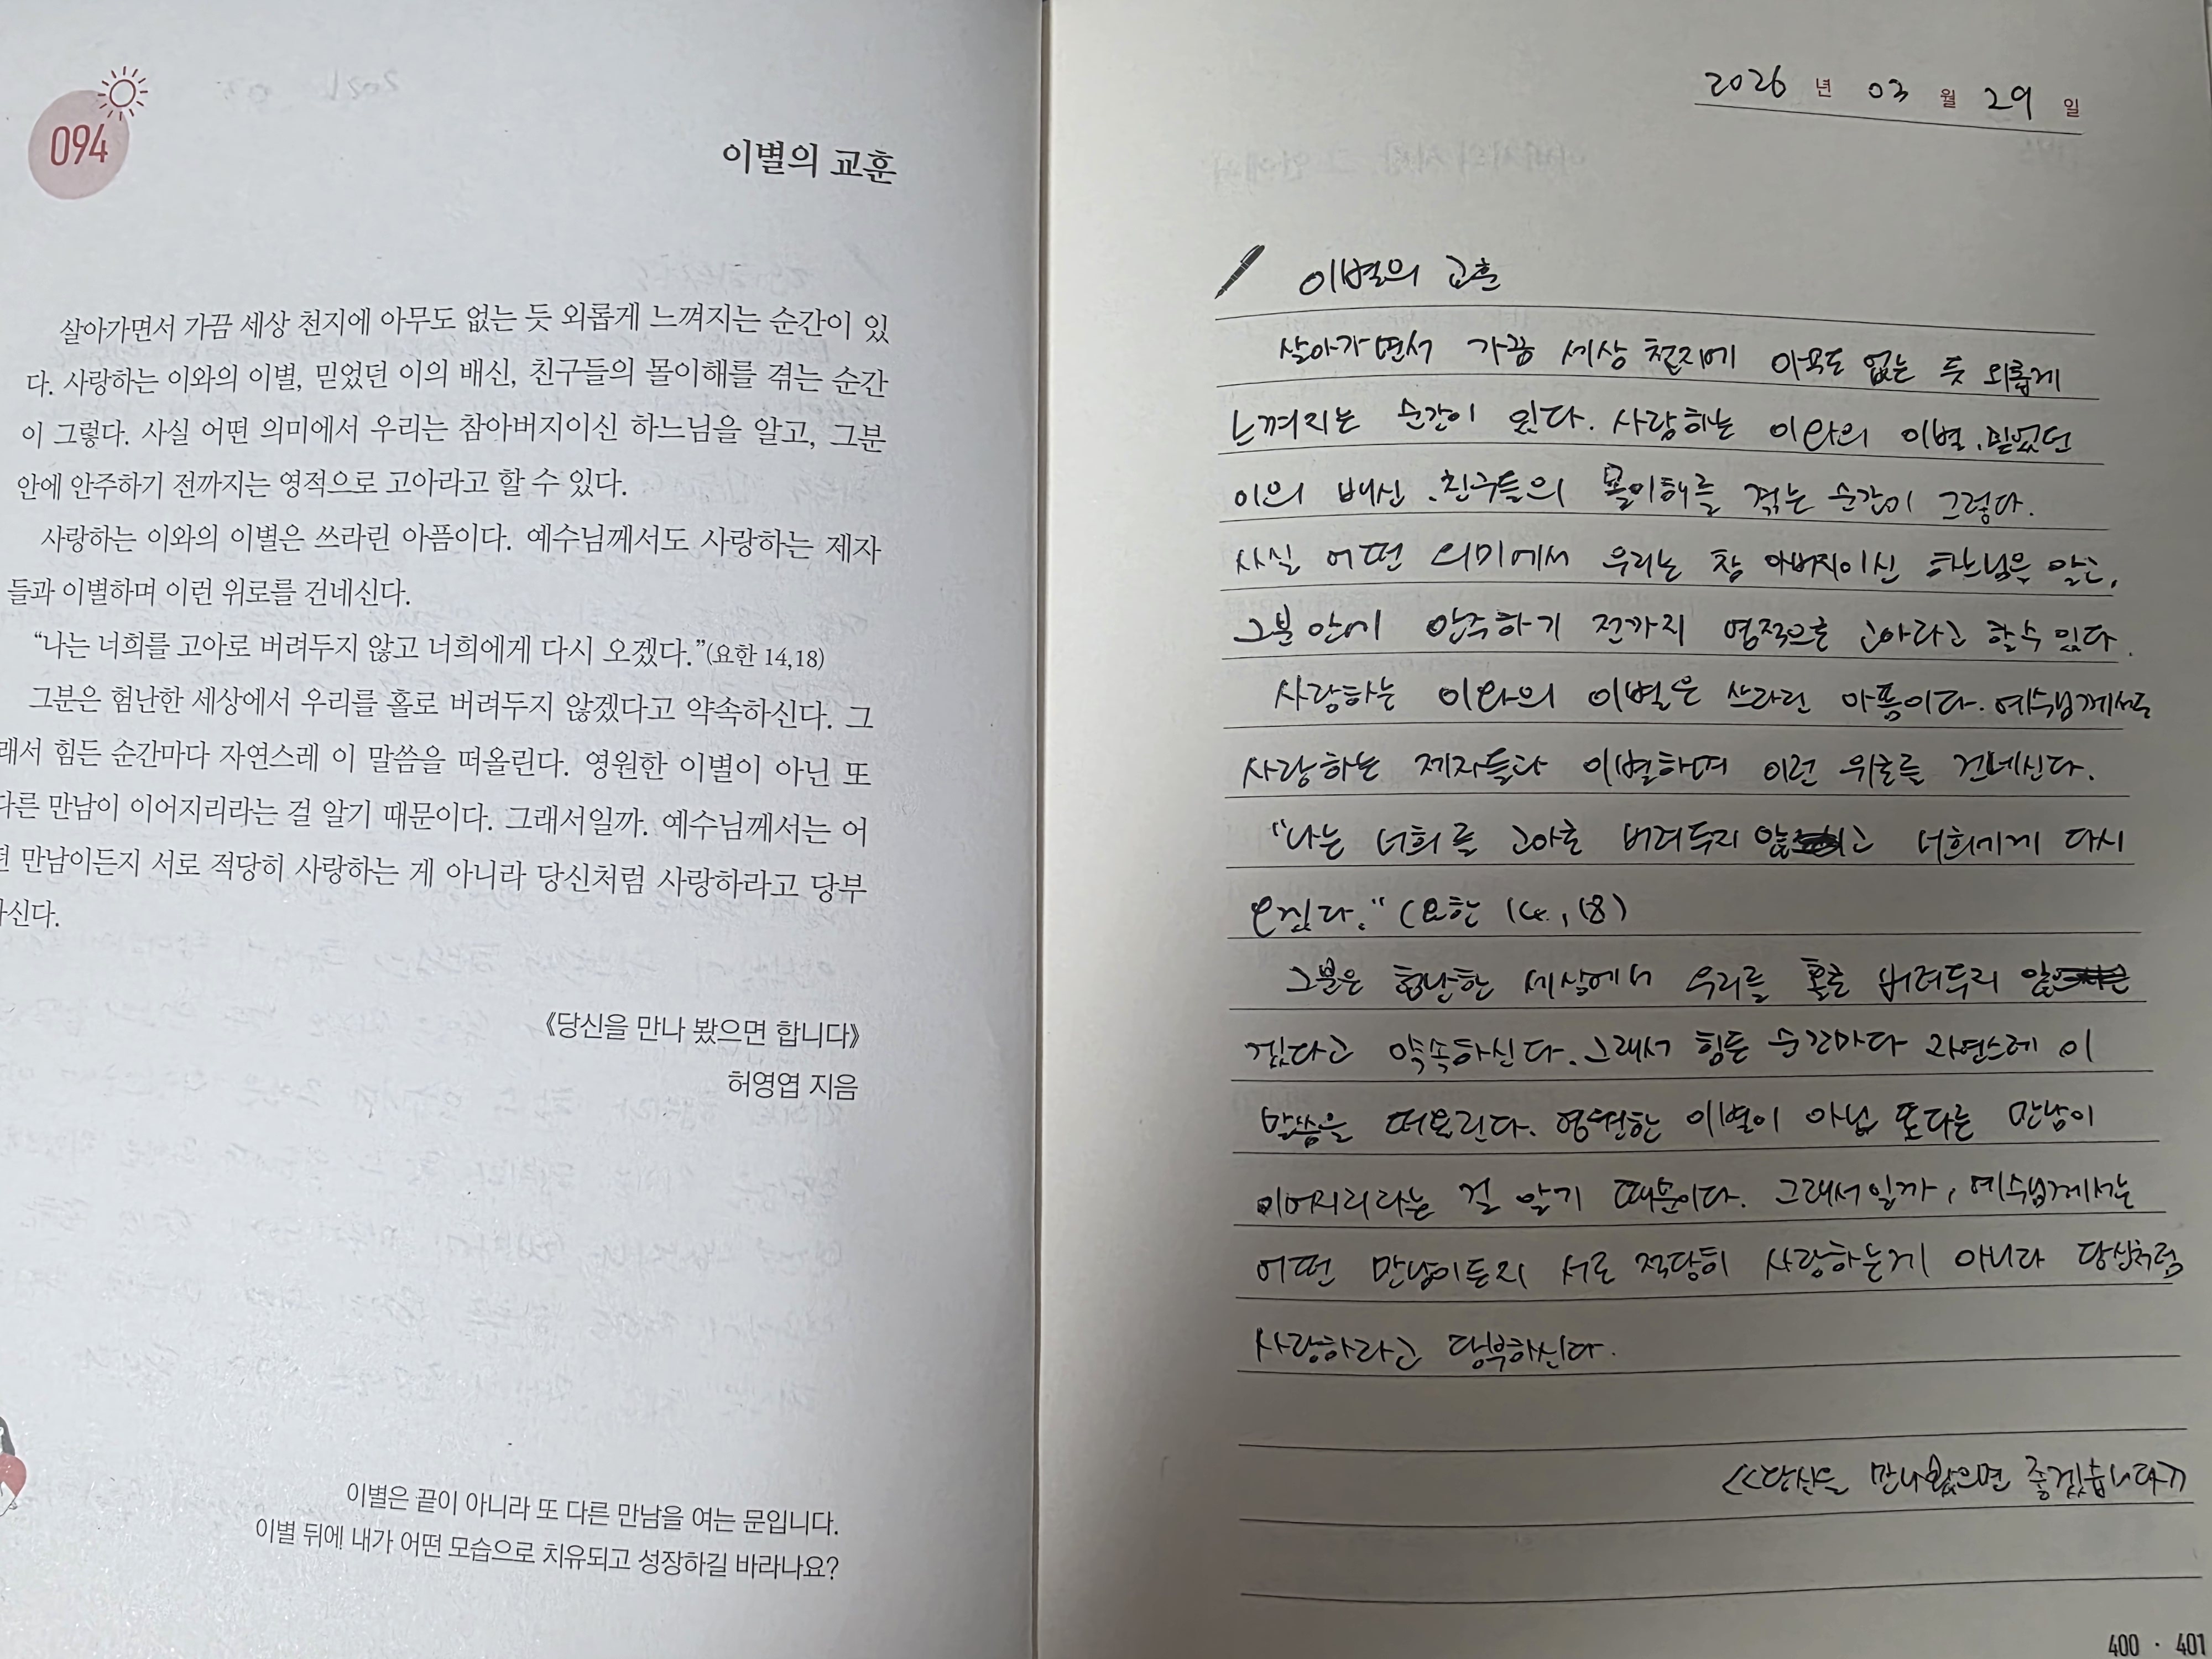 094
이별의 교훈
살아가면서 가끔 세상 천지에 아무도 없는 듯 외롭게 느껴지는 순간이 있
다. 사랑하는 이와의 이별, 믿었던 이의 배신, 친구들의 몰이해를 겪는 순간
이 그렇다. 사실 어떤 의미에서 우리는 참아버지이신 하느님을 알고, 그분
안에 안주하기 전까지는 영적으로 고아라고 할 수 있다.
사랑하는 이와의 이별은 쓰라린 아픔이다. 예수님께서도 사랑하는 제자
들과 이별하며 이런 위로를 건네신다.
“나는 너희를 고아로 버려두지 않고 너희에게 다시 오겠다.”(요한 14,18)
그분은 험난한 세상에서 우리를 홀로 버려두지 않겠다고 약속하신다. 그
래서 힘든 순간마다 자연스레 이 말씀을 떠올린다. 영원한 이별이 아닌 또
다른 만남이 이어지리라는 걸 알기 때문이다. 그래서일까. 예수님께서는 어
떤 만남이든지 서로 적당히 사랑하는 게 아니라 당신처럼 사랑하라고 당부
하신다.
《당신을 만나 봤으면 합니다》
허영엽 지음
이별은 끝이 아니라 또 다른 만남을 여는 문입니다.
이별 뒤에 내가 어떤 모습으로 치유되고 성장하길 바라나요?
2026 년 03 월 29 일
이별의 교훈
살아가면서 가끔 세상 천지에 아무도 없는 듯 외롭게
느껴지는 순간이 있다. 사랑하는 이와의 이별, 믿었던
이의 배신, 친구들의 몰이해를 겪는 순간이 그렇다.
사실 어떤 의미에서 우리는 참 아버지이신 하느님을 알고,
그분 안에 안주하기 전까지 영적으로 고아라고 할 수 있다.
사랑하는 이와의 이별은 쓰라린 아픔이다. 예수님께서도
사랑하는 제자들과 이별하며 이런 위로를 건네신다.
"나는 너희를 고아로 버려두지 않고 너희에게 다시
오겠다." (요한 14, 18)
그분은 험난한 세상에서 우리를 홀로 버려두지 않
겠다고 약속하신다. 그래서 힘든 순간마다 자연스레 이
말씀을 떠오린다. 영원한 이별이 아닌 또다른 만남이
이어지리라는 걸 알기 때문이다. 그래서일까, 예수님께서는
어떤 만남이든지 서로 적당히 사랑하는게 아니라 당신처럼
사랑하라고 당부하신다.
<<당신을 만나봤으면 좋겠습니다>>
400 · 401